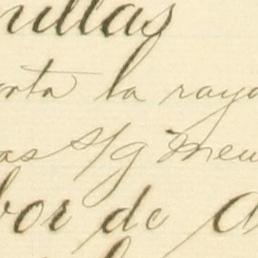 nillas
orta la raya
as S/G Meu
bor de a